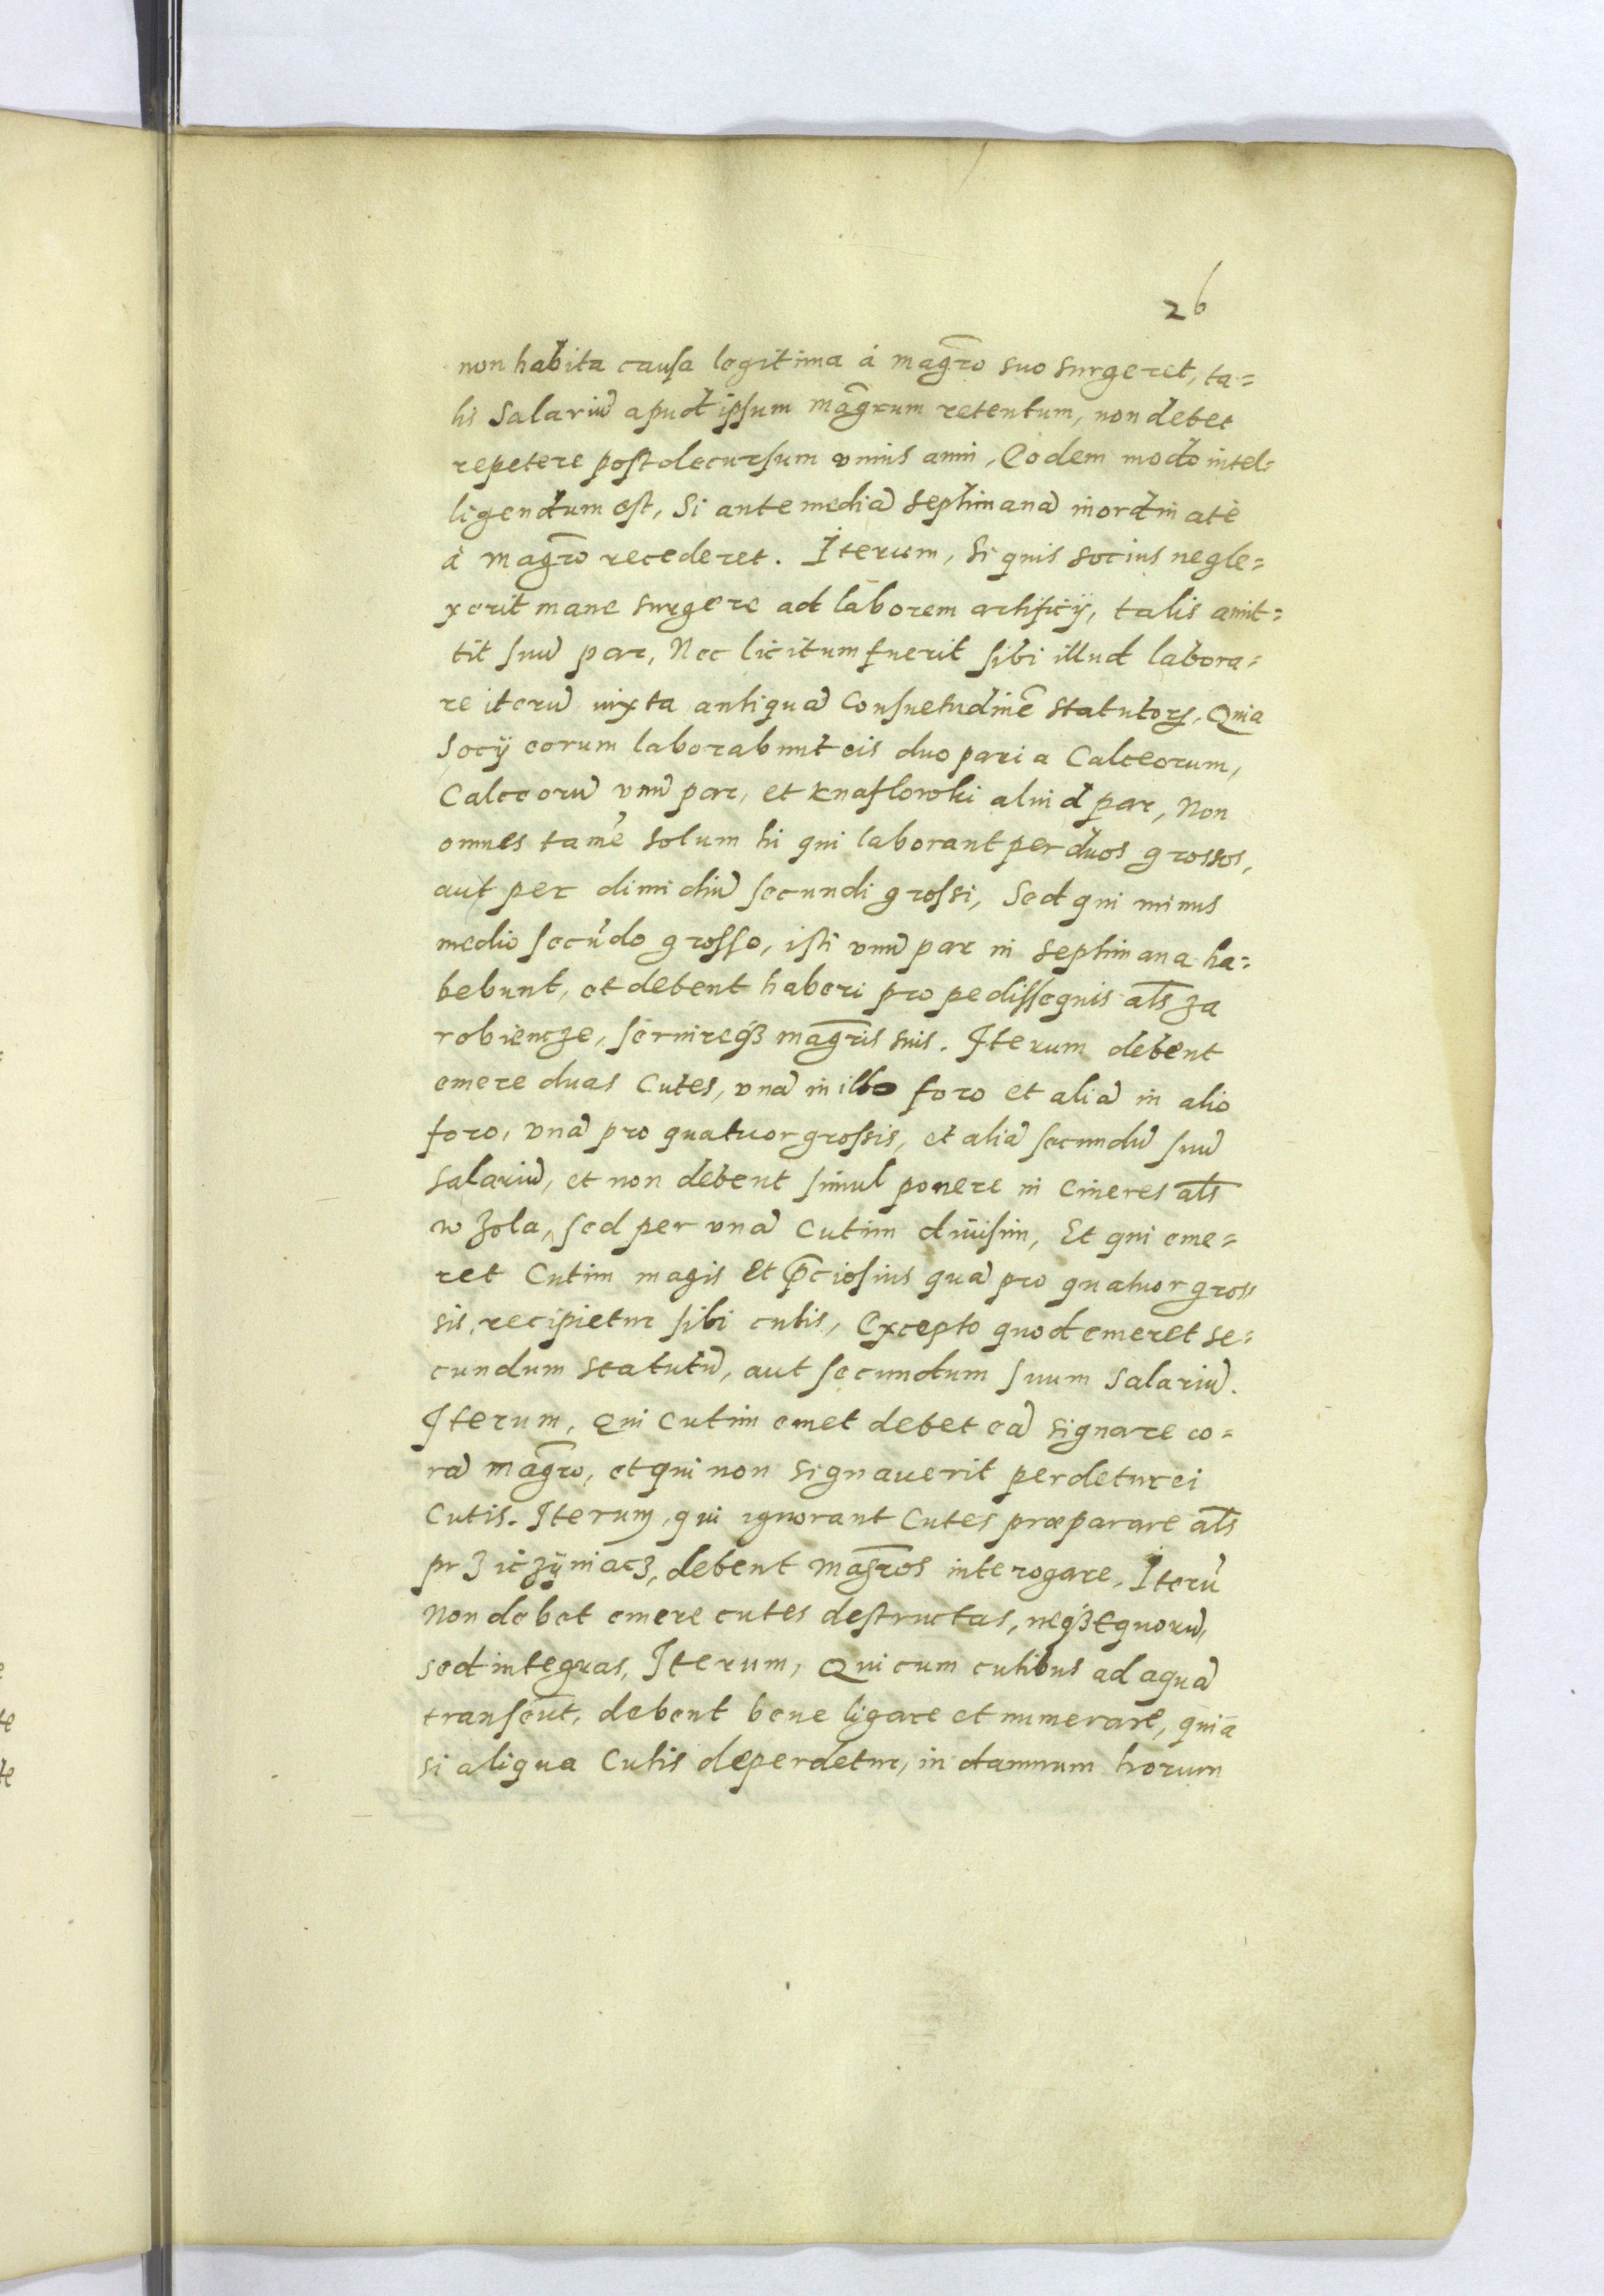 26
non habita causa legitima à mag̃ro suo surgeret, ta=
lis Salariũ apud ipsum mag̃rum retentum, non debet
repetere post decursum vnius anni, Eodem modo intel=
ligendum est, Si ante mediã septimanã inordinatè
à mag̃ro recederet. Iterum, Si quis socius negle=
xerit mane surgere ad laborem artificij, talis amit=
tit suũ par, Nec licitum fuerit sibi illud labora=
re iterũ iuxta antiquã Consuetudinẽ statutorꝝ, Quia
Socij eorum laborabunt eis duo paria Calceorum,
Calceorũ vnũ par, et knaflowki aliud par, Non
omnes tamẽ solum hi qui laborant per duos grossos,
aut per dimidiũ secundi grossi, Sed qui minus
medio secũdo grosso, isti vnũ par in septimana ha=
bebunt, et debent haberi pro pedissequis al̃s za
robiencze, seruireqꝫ mag̃ris suis. Iterum debent
emere duas Cutes, vnã in illo foro et aliã in alio
foro, vnã pro quatuor grossis, et aliã secundũ suũ
salariũ, et non debent simul ponere in Cineres al̃s
w zola, sed per vnã Cutim diuisim, Et qui eme=
ret Cutim magis et p̃ciosius quã pro quatuor gros=
sis, recipietur sibi cutis, Excepto quod emeret se=
cundum statutũ, aut secundum suum Salariũ.
Iterum, Qui Cutim emet debet eã signare co=
rã mag̃ro, et qui non signauerit perdetur ei
Cutis. Iterum, qui ignorant Cutes præparare al̃s
przicziniacz, debent mag̃ros interogare, Iterũ
Non debet emere cutes destructas, neqꝫ Equorũ,
sed integras, Iterum, Qui cum cutibus ad aquã
transeũt, debent bene ligare et numerare, quia
si aliqua Cutis deperdetur, in damnum horum